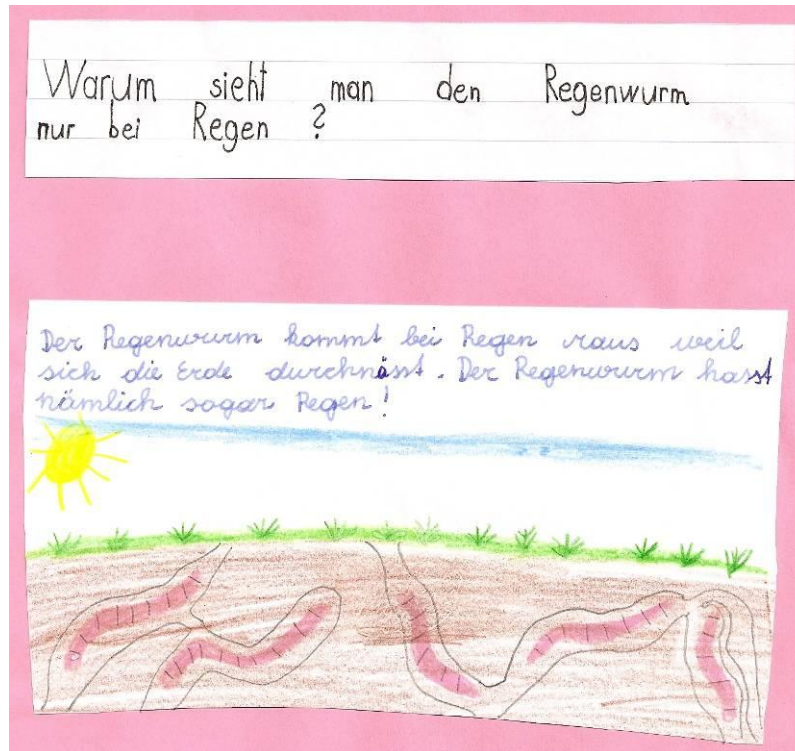 Warum sieht man den Regenwurm
nur bei Regen ?
Der Regenwurm kommt bei Regen raus weil
sich die Erde durchnässt. Der Regenwurm hasst
nämlich sogar Regen!